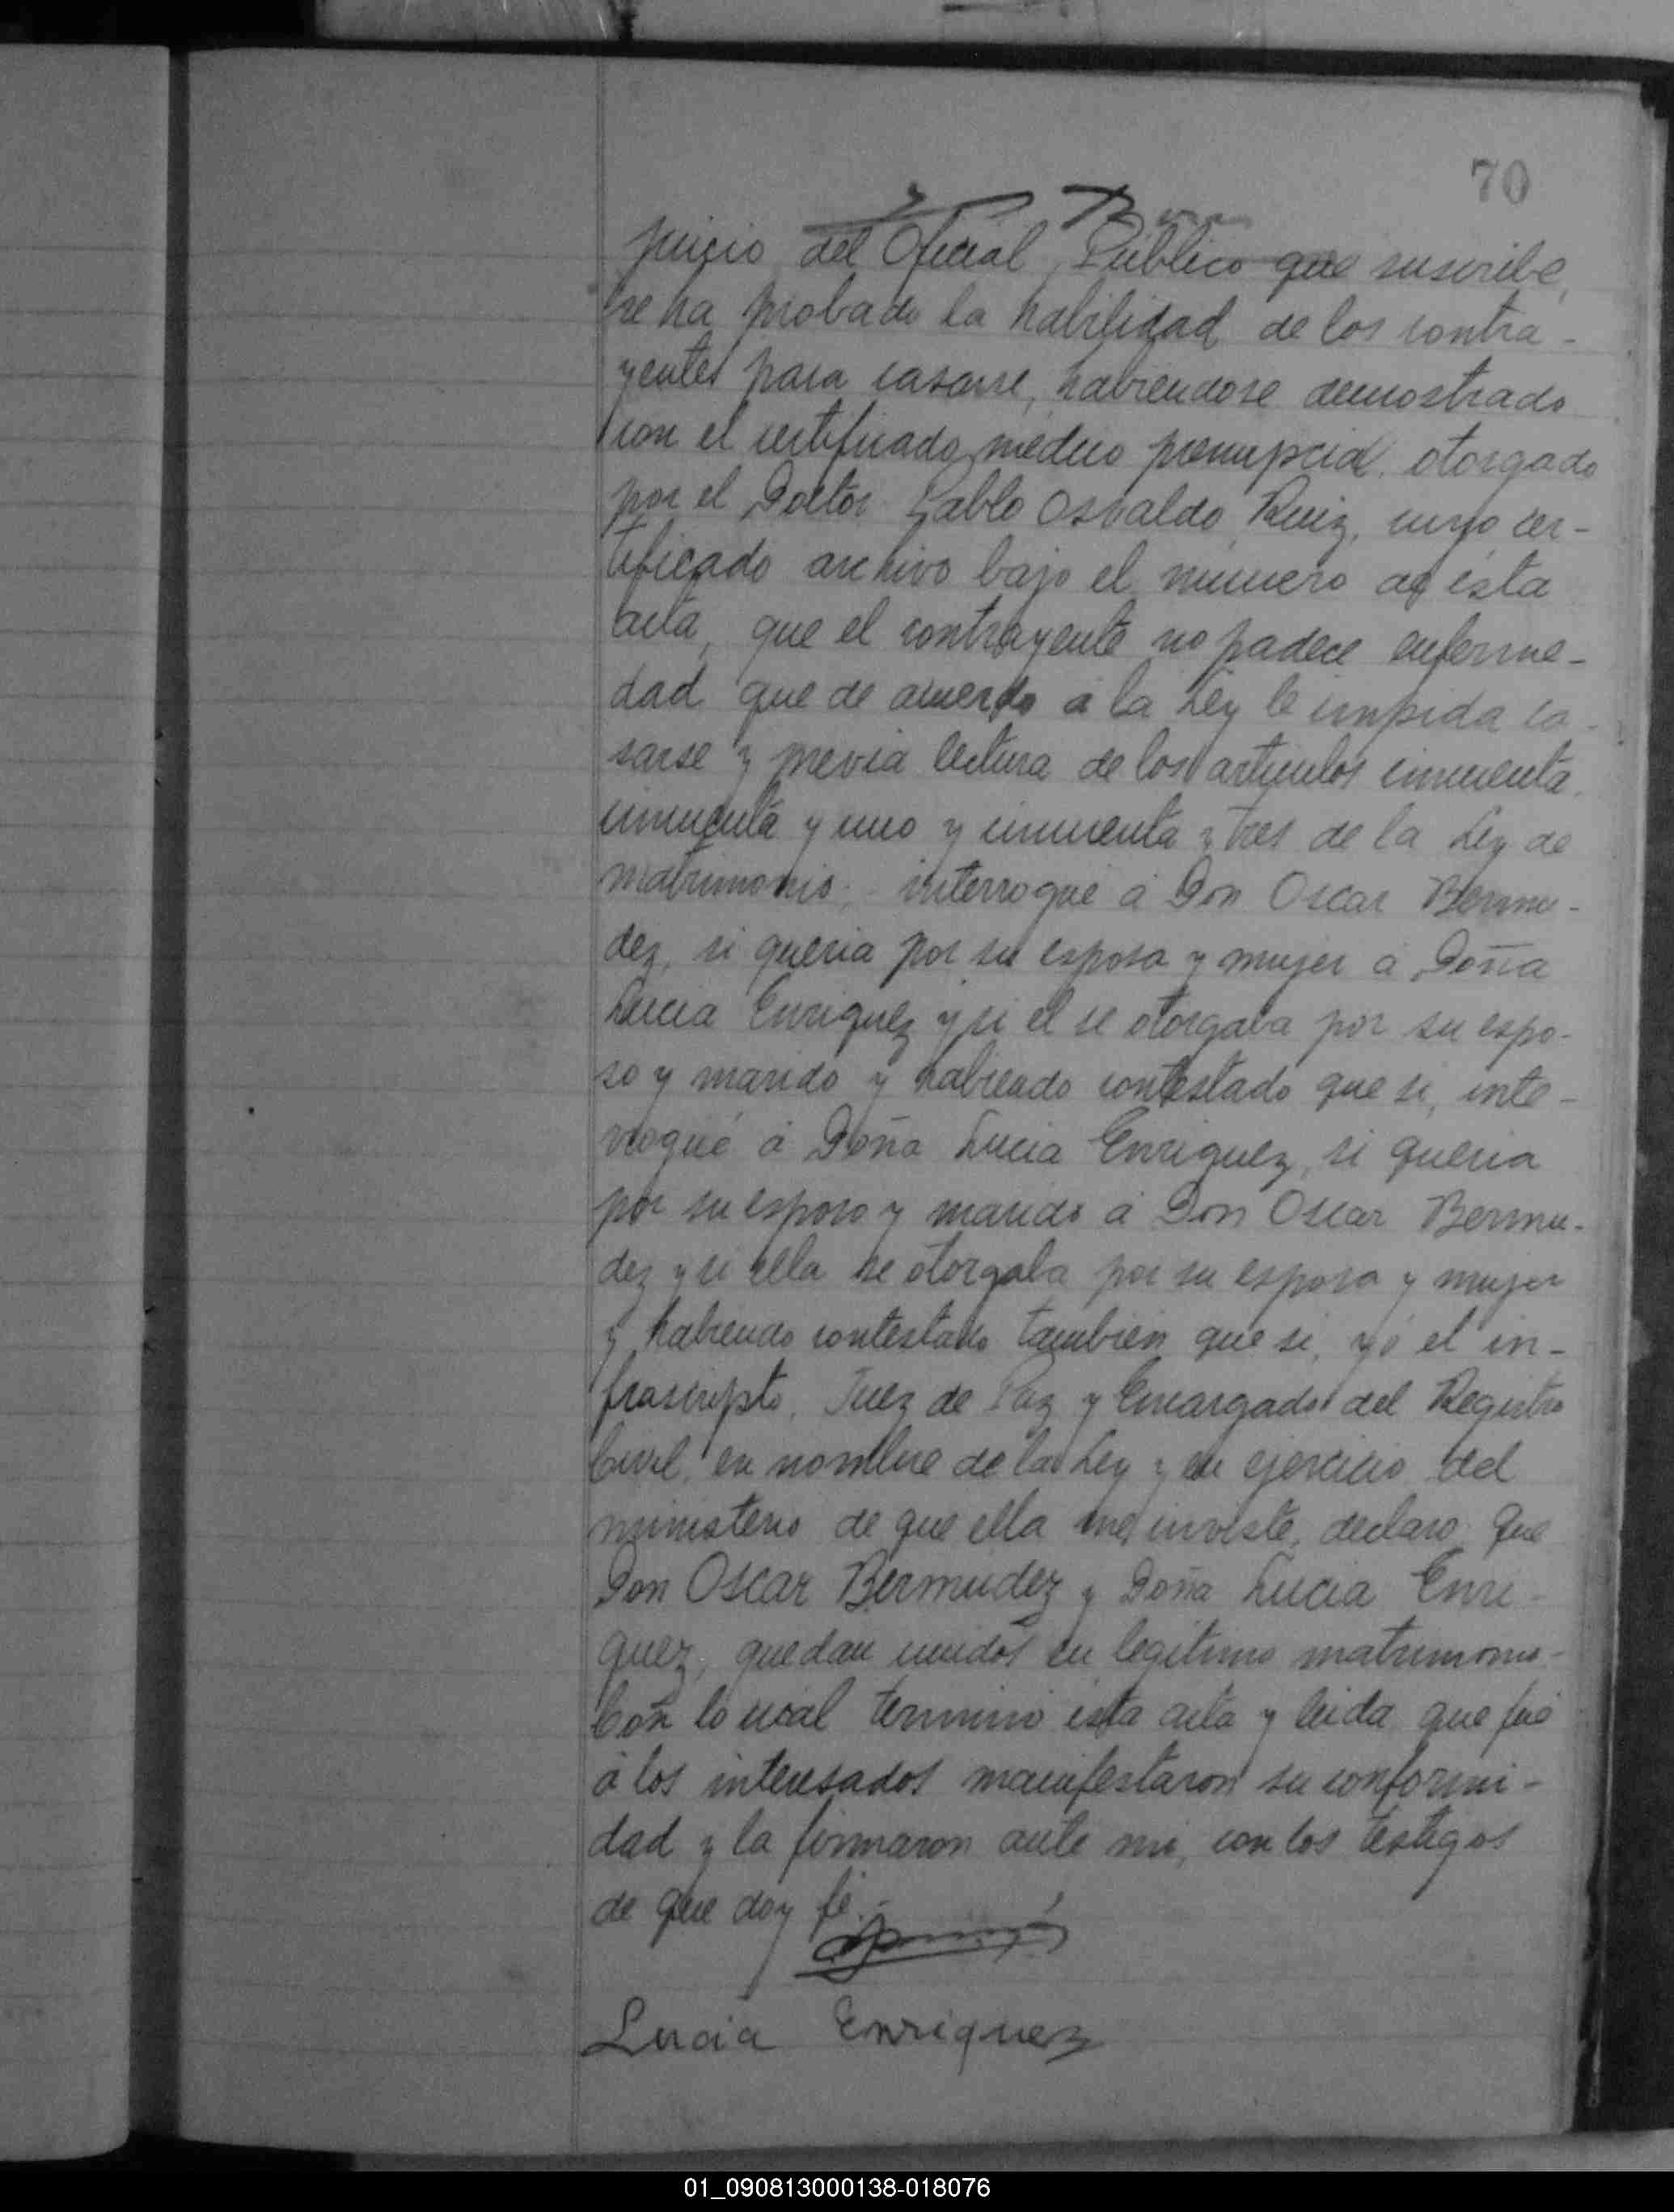 70
juicio del Oficial Público que suscribe,
se ha probado la habilidad de los contra-
yentes para casarse, habiendose demostrado
con el certificado medico prenupcial otorgado
por el Doctor Pablo Osvaldo Ruiz, cuyo cer-
tificado archivo bajo el número de ésta
acta, que el contrayente no padece enferme-
dad que de acuerdo á la Ley le impida ca-
sarse y previa lectura de los artículos cincuenta,
cincuenta y uno y cincuenta y tres de la Ley de
matrimonio, interrogué á Don Oscar Bermu-
dez, si queria por su esposa y mujer á Doña
Lucia Enriquez y si el se otorgaba por su espo-
so y marido y habiendo contestado que si, inte-
rrogué á Doña Lucia Enriquez, si queria
por su esposo y marido á Don Oscar Bermu-
dez y si ella se otorgaba por su esposa y mujer
y habiendo contestado tambien que si, yó el in-
frascripto, Juez de Paz y Encargado del Registro
Civil, en nombre de la Ley y en ejercicio del
ministerio de que ella me inviste, declaro que
Don Oscar Bermudez y Doña Lucia Enri-
quez, quedan unidos en legítimo matrimonio-
Con lo cual terminó ésta acta y leida que fué
á los interesados manifestaron su conformi-
dad y la firmaron ante mi, con los testigos
de que doy fé.-
Lucia Enriquez
01_090813000138-018076